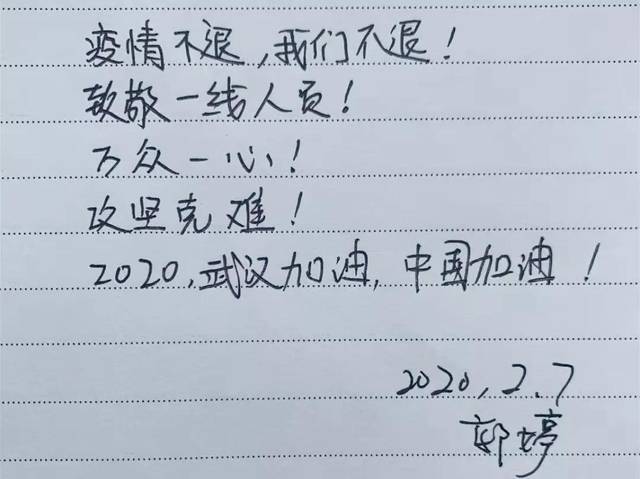 疫情不退,我们不退!
致敬一线人员!
万众一心!
攻坚克难!
2020,武汉加油,中国加油!
2020,2.7
郭婷